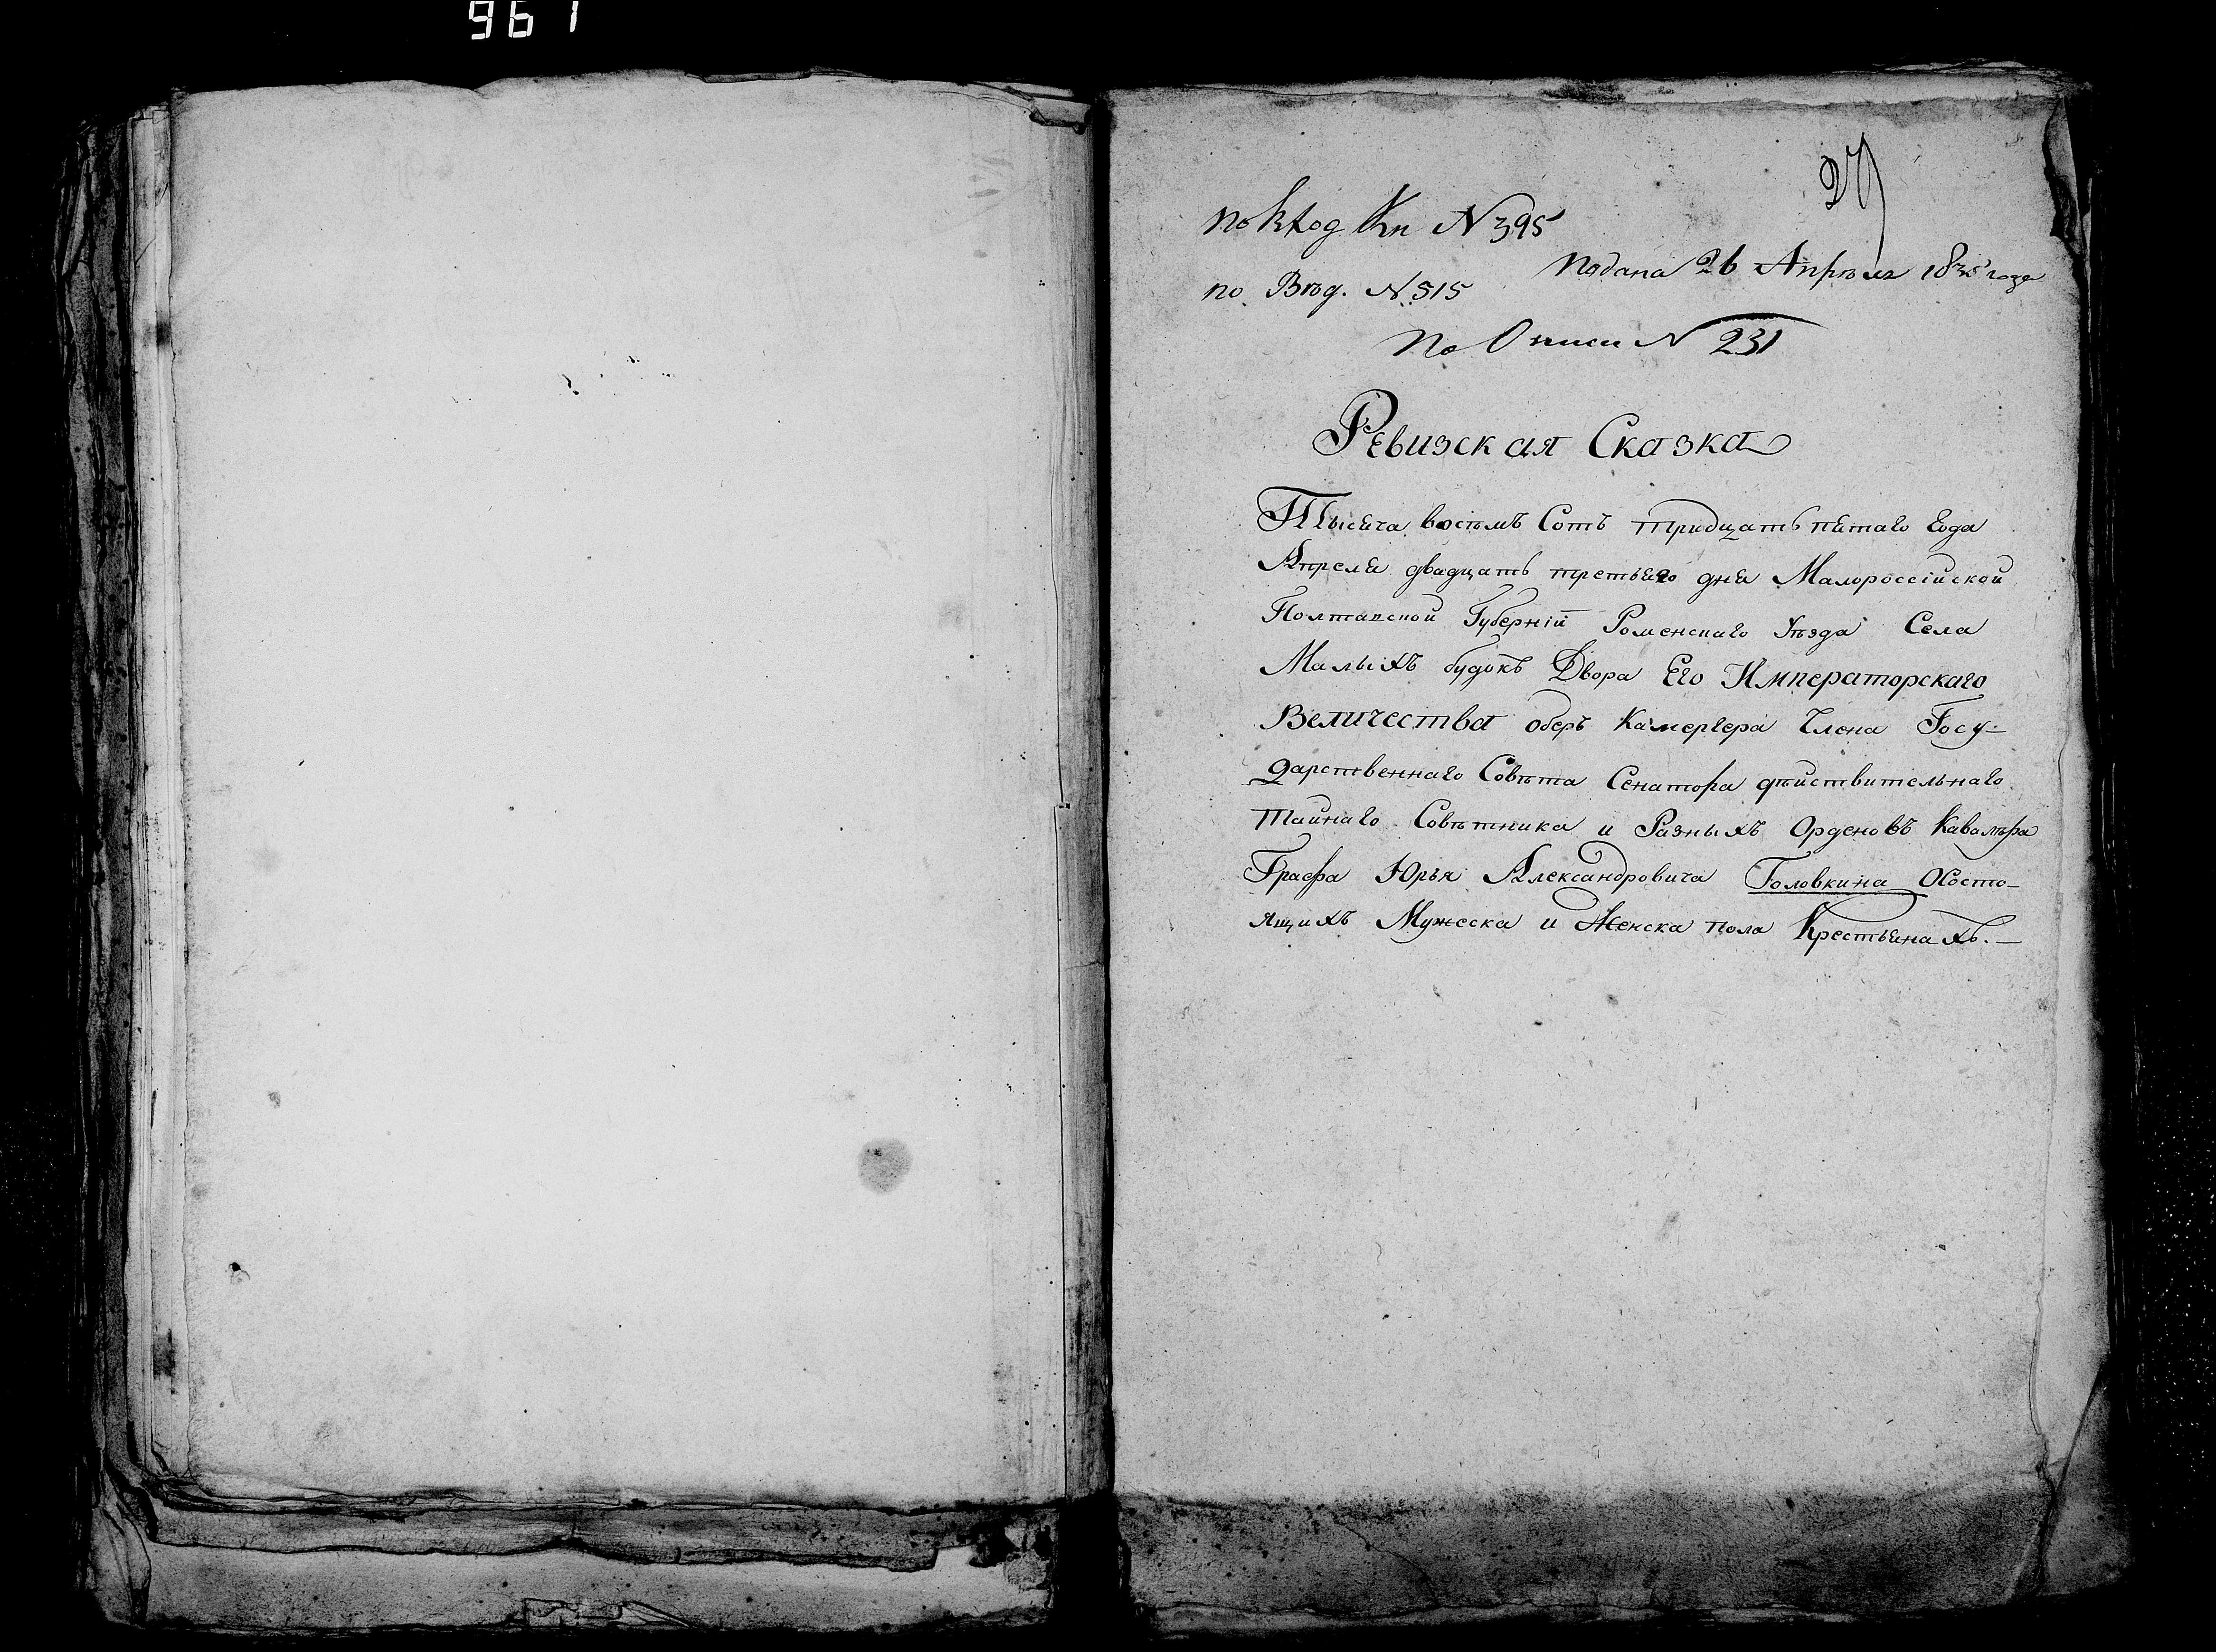 961
27
по вход Кн N 395
подана 26 Апрѣля 1835 года
по Вѣд. N. 515
По Описи N 231
Ревизская Сказка
Тысяча восѣмъ Сотъ тридцать пятаго года
Апреля двадцать третьяго дня Малороссійской
Полтавской Губерніи Роменскаго Уѣзда Села
Малыхъ будокъ Двора Его Императорскаго
Величества оберъ Камергера Члена Госу-
дарственнаго Совѣта Сенатора дѣйствительнаго
Тайнаго Совѣтника и Разныхъ Орденовъ Кавалѣра
Графа Юрья Александровича Головкина Осостo-
ящихъ Мужеска и Женска пола Крестьянахъ.—